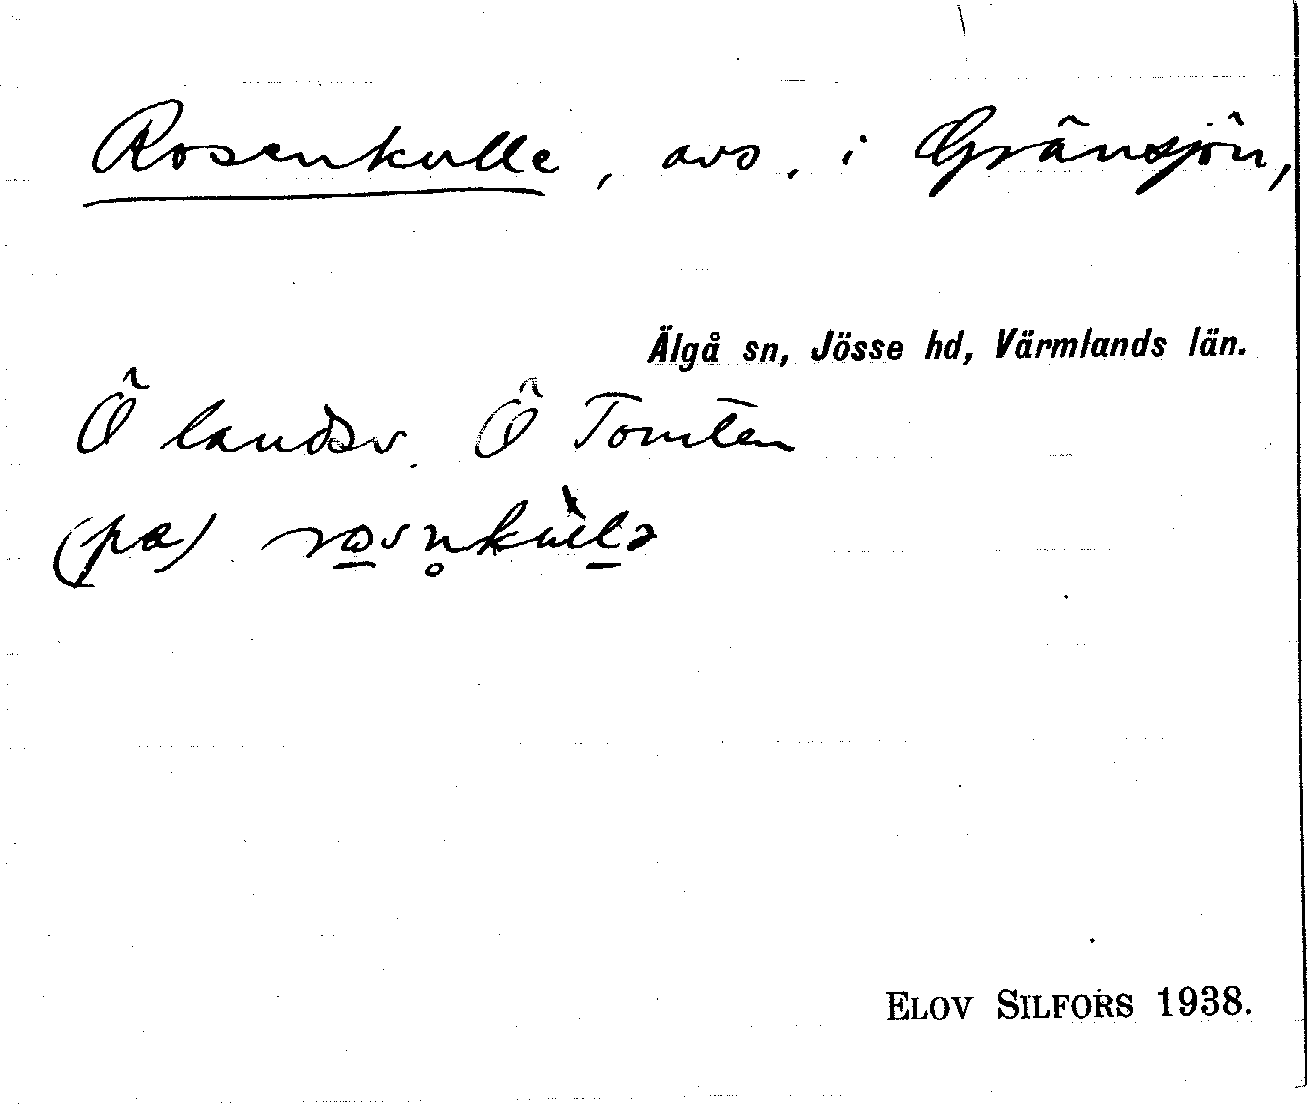 Rosenkulle, avs. i Gränsjön,
Älgå sn, Jösse hd, Värmlands län.
Ö landsv. Ö Tomten
(pa) ro̲sn̥kùl̲ə
ELOV SILFORS 1938.